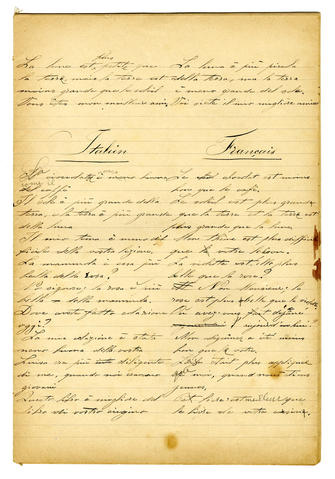 plus
La lune est petite que La luna è più piccola
la terre mais la terre est della terra, ma la terra
moins grande que le soleil è meno grande del sole.
Vous êtes mon meilleur ami, Voi siete il mio migliore amico
Italien Français
La cioccolata è meno buona Le chocolat est moins
il caffè bon que le café.
Il sole è più grande della Le soleil est plus grand
terra, e la terra è più grande que la terre et la terre est
della luna plus grande que la lune.
Il mio tema è meno dif Mon thème est plus difficile
ficile della vostra lezione. que la votre leçon.
La mammola è essa più La violette est elle plus
bella della rosa? belle que la rose?
No signore; la rosa è più Non Monsieur; la
bella della mammola. rose est plus belle que la
Dove avete fatto colazione Où avez vous fait déjeuner
oggi? aujourd'hui?
La mia colazione è stata Mon déjeuner a été moins
meno buona della vostra bon que le votre
Luisa era più diligente Louise était plus appliquée
di me, quando noi eravamo que moi, quand nous étions
giovani jeunes.
Questo libro è migliore del Cet livre est meilleur que
libro di vostro cugino le livre de votre cousine.